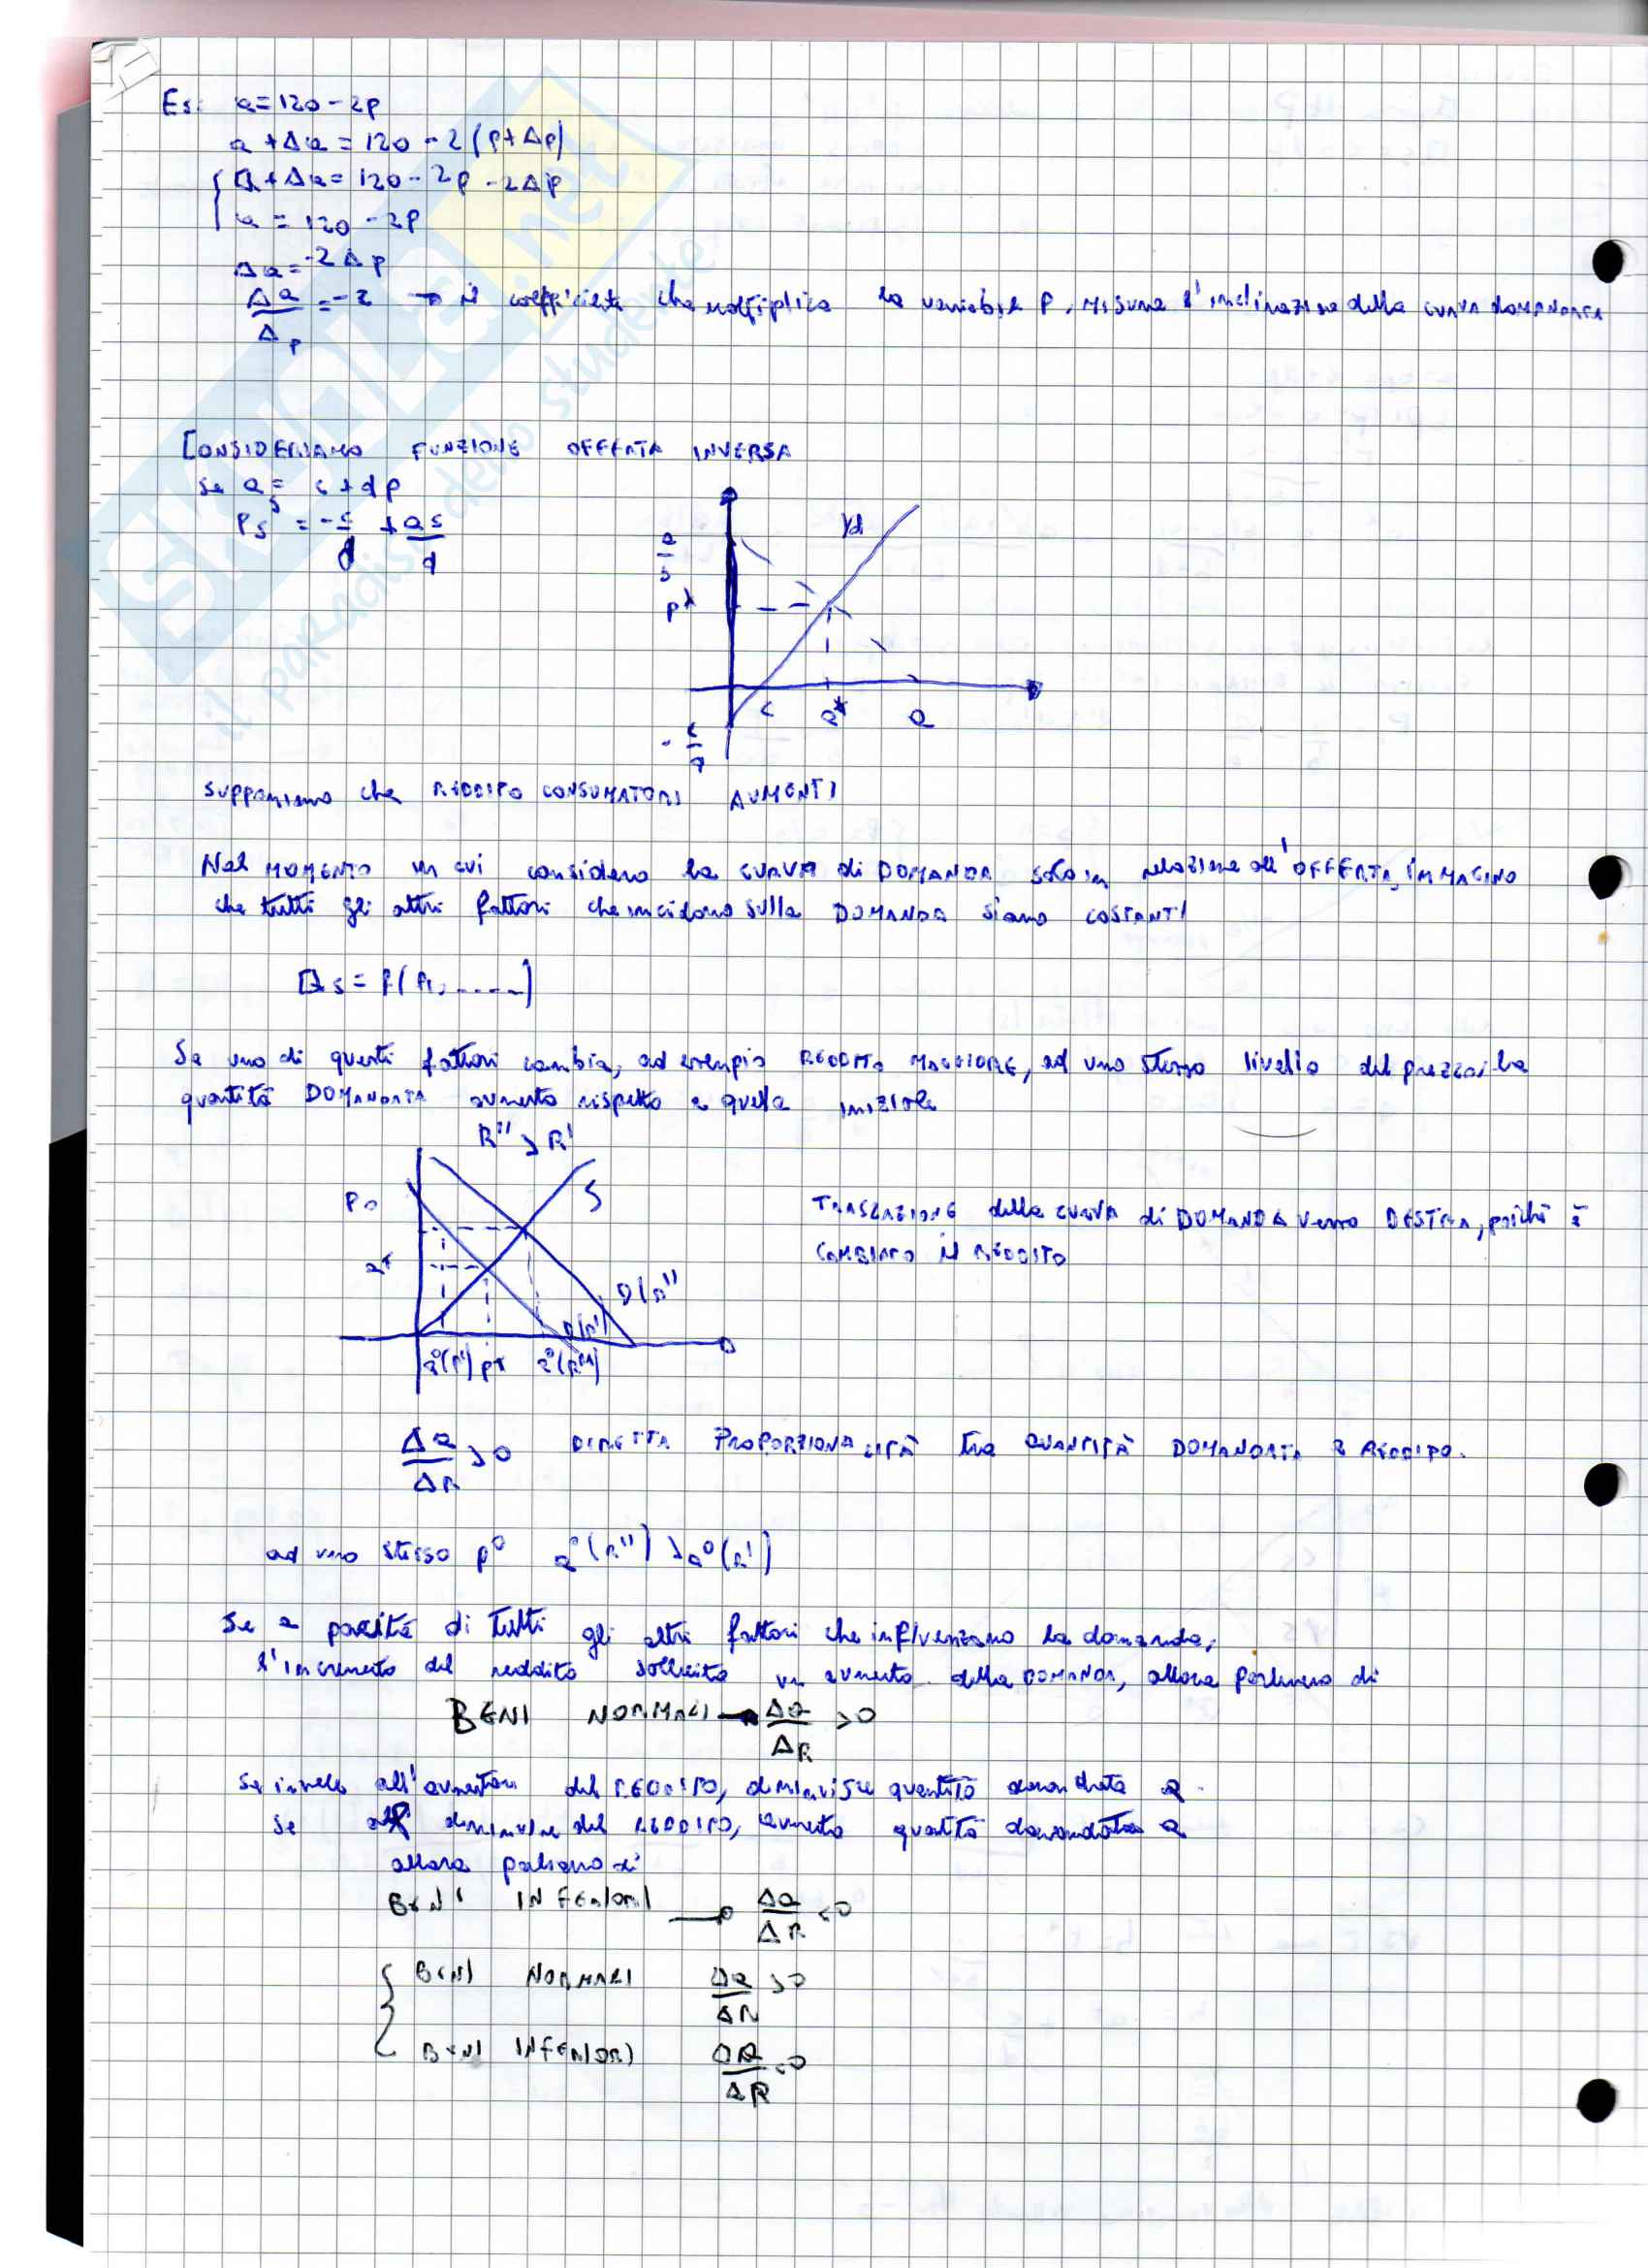 Es: Q=120-2p
Q+ΔQ=120-2(p+Δp)
Q+ΔQ=120-2p-2Δp
Q=120-2p
ΔQ=-2Δp
ΔQ/Δp=-2 → il coefficiente che moltiplica la variabile p, misura l'inclinazione della curva domandata
CONSIDERIAMO FUNZIONE OFFERTA INVERSA
se Qs=c+dp
Ps=-c/d+Qs/d
a/b
p*
c Q* Q
-c/d
supponiamo che REDDITO CONSUMATORI AUMENTI
Nel MOMENTO in cui considero la CURVA di DOMANDA solo in relazione all'OFFERTA, IMMAGINO
che tutti gli altri fattori che incidono sulla DOMANDA siano COSTANTI
Qs=f(P1,.....)
Se uno di questi fattori cambia, ad esempio REDDITO MAGGIORE, ad uno stesso livello del prezzo, la
quantità DOMANDATA aumenta rispetto a quella INIZIALE
R''>R'
P0
S
Q*
D(R'')
D(R')
Q°(R') P* Q°(R'')
TRASLAZIONE della CURVA di DOMANDA verso DESTRA, poiché è
CAMBIATO il REDDITO
ΔQ/ΔR>0 DIRETTA PROPORZIONALITÀ tra QUANTITÀ DOMANDATA e REDDITO.
ad uno stesso p° Q°(R'')>Q°(R')
Se a parità di tutti gli altri fattori che influenzano la domanda,
l'incremento del reddito sollecita un aumento della DOMANDA, allora parliamo di
BENI NORMALI → ΔQ/ΔR >0
Se invece all'aumentare del REDDITO, diminuisce quantità domandata Q
Se al diminuire del REDDITO, aumenta quantità domandata Q
allora parliamo di
BENI INFERIORI → ΔQ/ΔR <0
BENI NORMALI ΔQ/ΔR >0
BENI INFERIORI ΔQ/ΔR <0
skuola.net
il paradiso dello studente